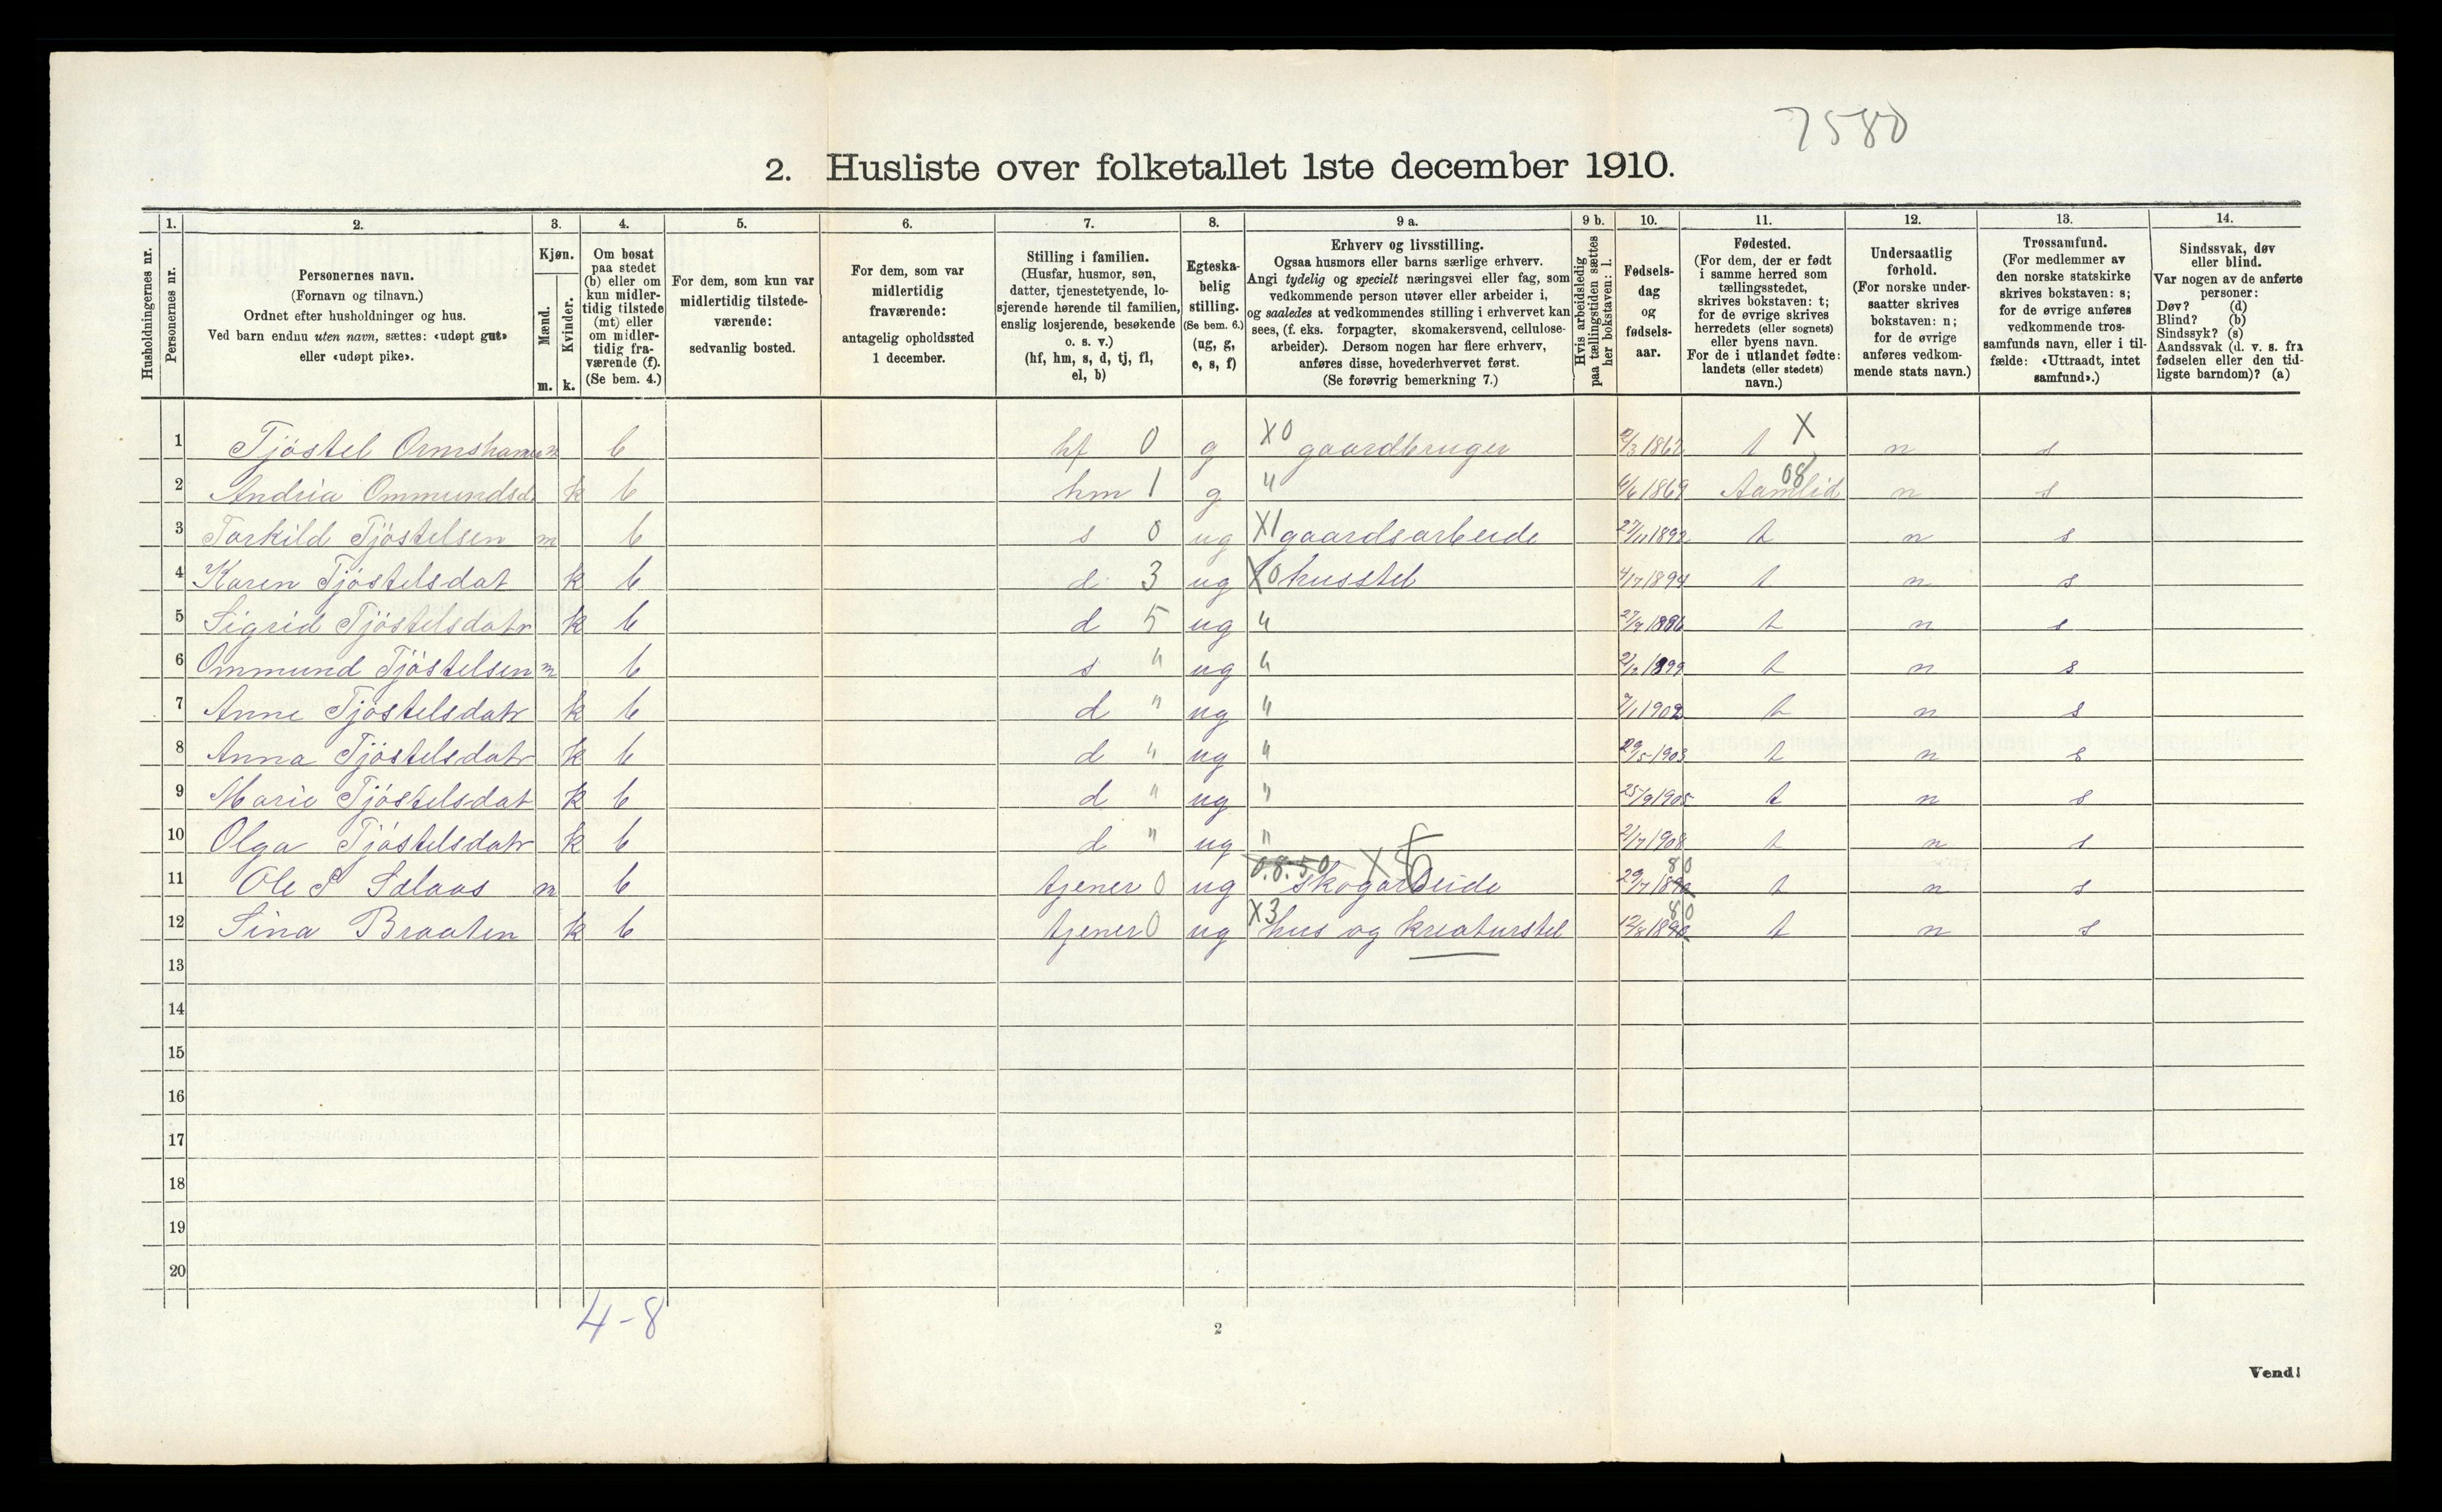 7580
2. Husliste over folketallet 1ste december 1910.
Husholdningernes nr.
1. Personernes nr.
2. Personernes navn.
(Fornavn og tilnavn.)
Ordnet efter husholdninger og hus.
Ved barn endnu uten navn, sættes: «udøpt gut»
eller «udøpt pike».
3. Kjøn.
Mænd. m.
Kvinder. k.
4. Om bosat
paa stedet
(b) eller om
kun midler-
tidig tilstede
(mt) eller
om midler-
tidig fra-
værende (f).
(Se bem. 4.)
5. For dem, som kun var
midlertidig tilstede-
værende:
sedvanlig bosted.
6. For dem, som var
midlertidig
fraværende:
antagelig opholdssted
1 december.
7. Stilling i familien.
(Husfar, husmor, søn,
datter, tjenestetyende, lo-
sjerende hørende til familien,
enslig losjerende, besøkende
o. s. v.)
(hf, hm, s, d, tj, fl,
el, b)
8. Egteska-
belig
stilling.
(Se bem. 6.)
(ug, g,
e, s, f)
9 a. Erhverv og livsstilling.
Ogsaa husmors eller barns særlige erhverv.
Angi tydelig og specielt næringsvei eller fag, som
vedkommende person utøver eller arbeider i,
og saaledes at vedkommendes stilling i erhvervet kan
sees, (f. eks. forpagter, skomakersvend, cellulose-
arbeider). Dersom nogen har flere erhverv,
anføres disse, hovederhvervet først.
(Se forøvrig bemerkning 7.)
9 b. Hvis arbeidsledig
paa tællingstiden sættes
her bokstaven: l.
10. Fødsels-
dag
og
fødsels-
aar.
11. Fødested.
(For dem, der er født
i samme herred som
tællingsstedet,
skrives bokstaven: t;
for de øvrige skrives
herredets (eller sognets)
eller byens navn.
For de i utlandet fødte:
landets (eller stedets)
navn.)
12. Undersaatlig
forhold.
(For norske under-
saatter skrives
bokstaven: n;
for de øvrige
anføres vedkom-
mende stats navn.)
13. Trossamfund.
(For medlemmer av
den norske statskirke
skrives bokstaven: s;
for de øvrige anføres
vedkommende tros-
samfunds navn, eller i til-
fælde: «Uttraadt, intet
samfund».)
14. Sindssvak, døv
eller blind.
Var nogen av de anførte
personer:
Døv? (d)
Blind? (b)
Sindssyk? (s)
Aandssvak (d. v. s. fra
fødselen eller den tid-
ligste barndom)? (a)
1 Tjöstel m b hf 0 g X0 gaardbruger t X n s
2 Andria Ommundsd k b hm 1 g " 1869 Aamlid 08 n s
3 Torkild Tjöstelsen m b s 0 ug X1 gaardsarbeide 27/11 1892 t n s
4 Karen Tjöstelsdat k b d 3 ug X0 husstel 4/7 1894 t n s
5 Sigrid Tjöstelsdatr k b d 5 ug " t n s
6 Ommund Tjöstelsen m b s " ug " 1899 t n s
7 Anne Tjöstelsdatr k b d " ug " t n s
8 Anna Tjöstelsdatr k b d " ug " 29/5 1903 t n s
9 Marie Tjöstelsdat k b d " ug " 25/9 1905 t n s
10 Olga Tjöstelsdatr k b d " ug " 2/7 1908 t n s
11 Ole S m b tjener 0 ug 0.8.50 X 5 skogarbeide 29/7 80 t n s
12 Sina Braaten k b tjener 0 ug X3 hus og kreaturstel 12/8 1890 80 t n s
13
14
15
16
17
18
19
20
4-8
2
Vend!